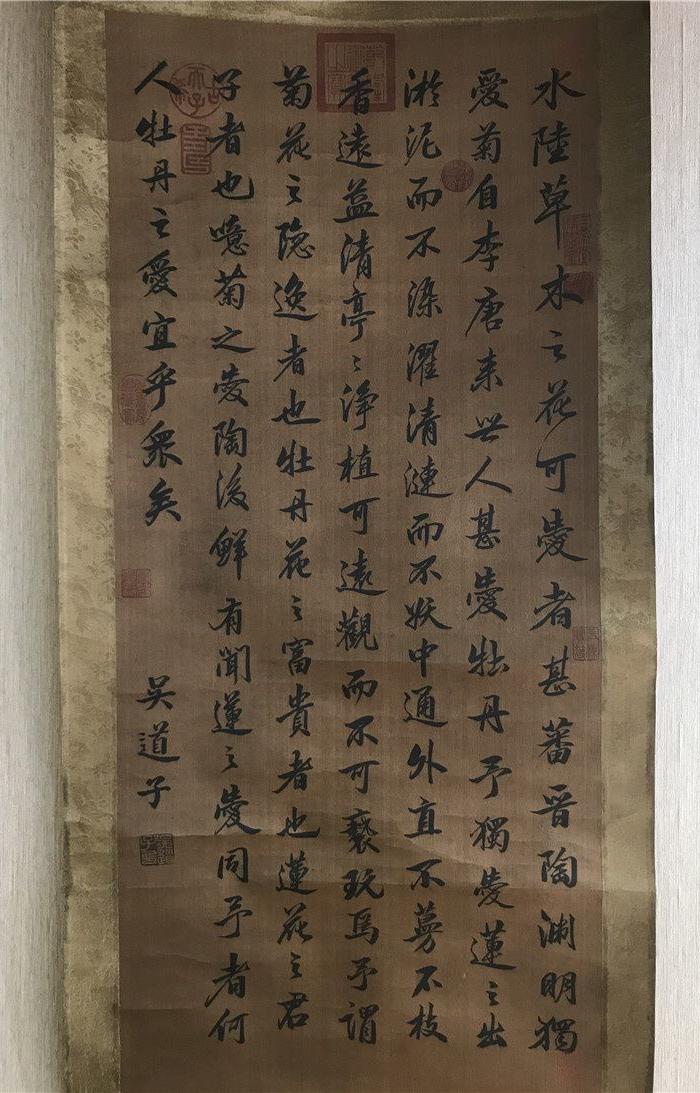 水陸草木之花可愛者甚蕃晉陶渕明獨
愛菊自李唐来世人甚愛牡丹予獨愛蓮之出
淤泥而不染濯清漣而不妖中通外直不蔓不枝
香遠益清亭〻淨植可遠觀而不可褻玩焉予謂
菊花之隐逸者也牡丹花之富貴者也蓮花之君
子者也噫菊之愛陶後鮮有聞蓮之愛同予者何
人牡丹之愛宜乎衆矣
吴道子